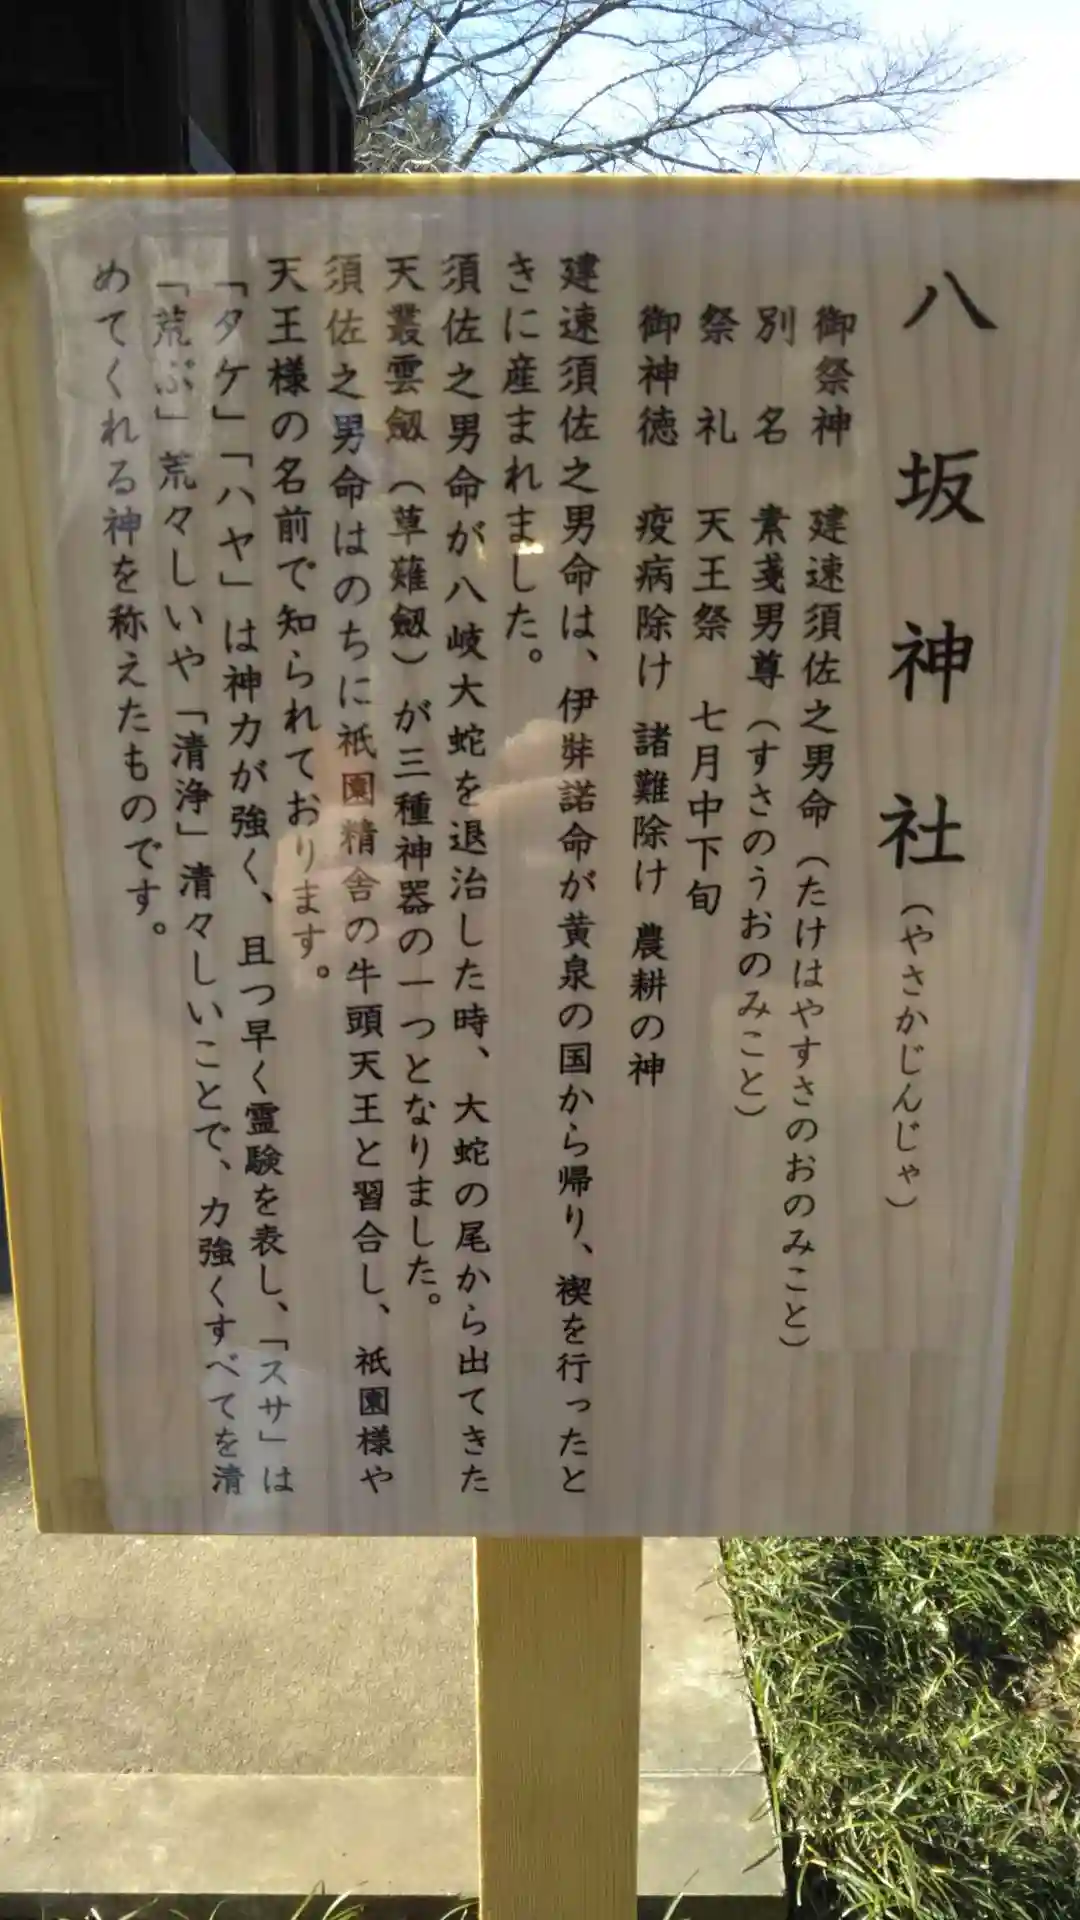 八坂神社（やさかじんじゃ）
御祭神　建速須佐之男命（たけはやすさのおのみこと）
別名　素戔男尊（すさのうおのみこと）
祭礼　天王祭　七月中下旬
御神徳　疫病除け　諸難除け　農耕の神
建速須佐之男命は、伊弉諾命が黄泉の国から帰り、禊を行ったと
きに産まれました。
須佐之男命が八岐大蛇を退治した時、大蛇の尾から出てきた
天叢雲劔（草薙劔）が三種神器の一つとなりました。
須佐之男命はのちに祇園精舎の牛頭天王と習合し、祇園様や
天王様の名前で知られております。
「タケ」「ハヤ」は神力が強く、且つ早く霊験を表し、「スサ」は
「荒ぶ」荒々しいや「清浄」清々しいことで、力強くすべてを清
めてくれる神を称えたものです。